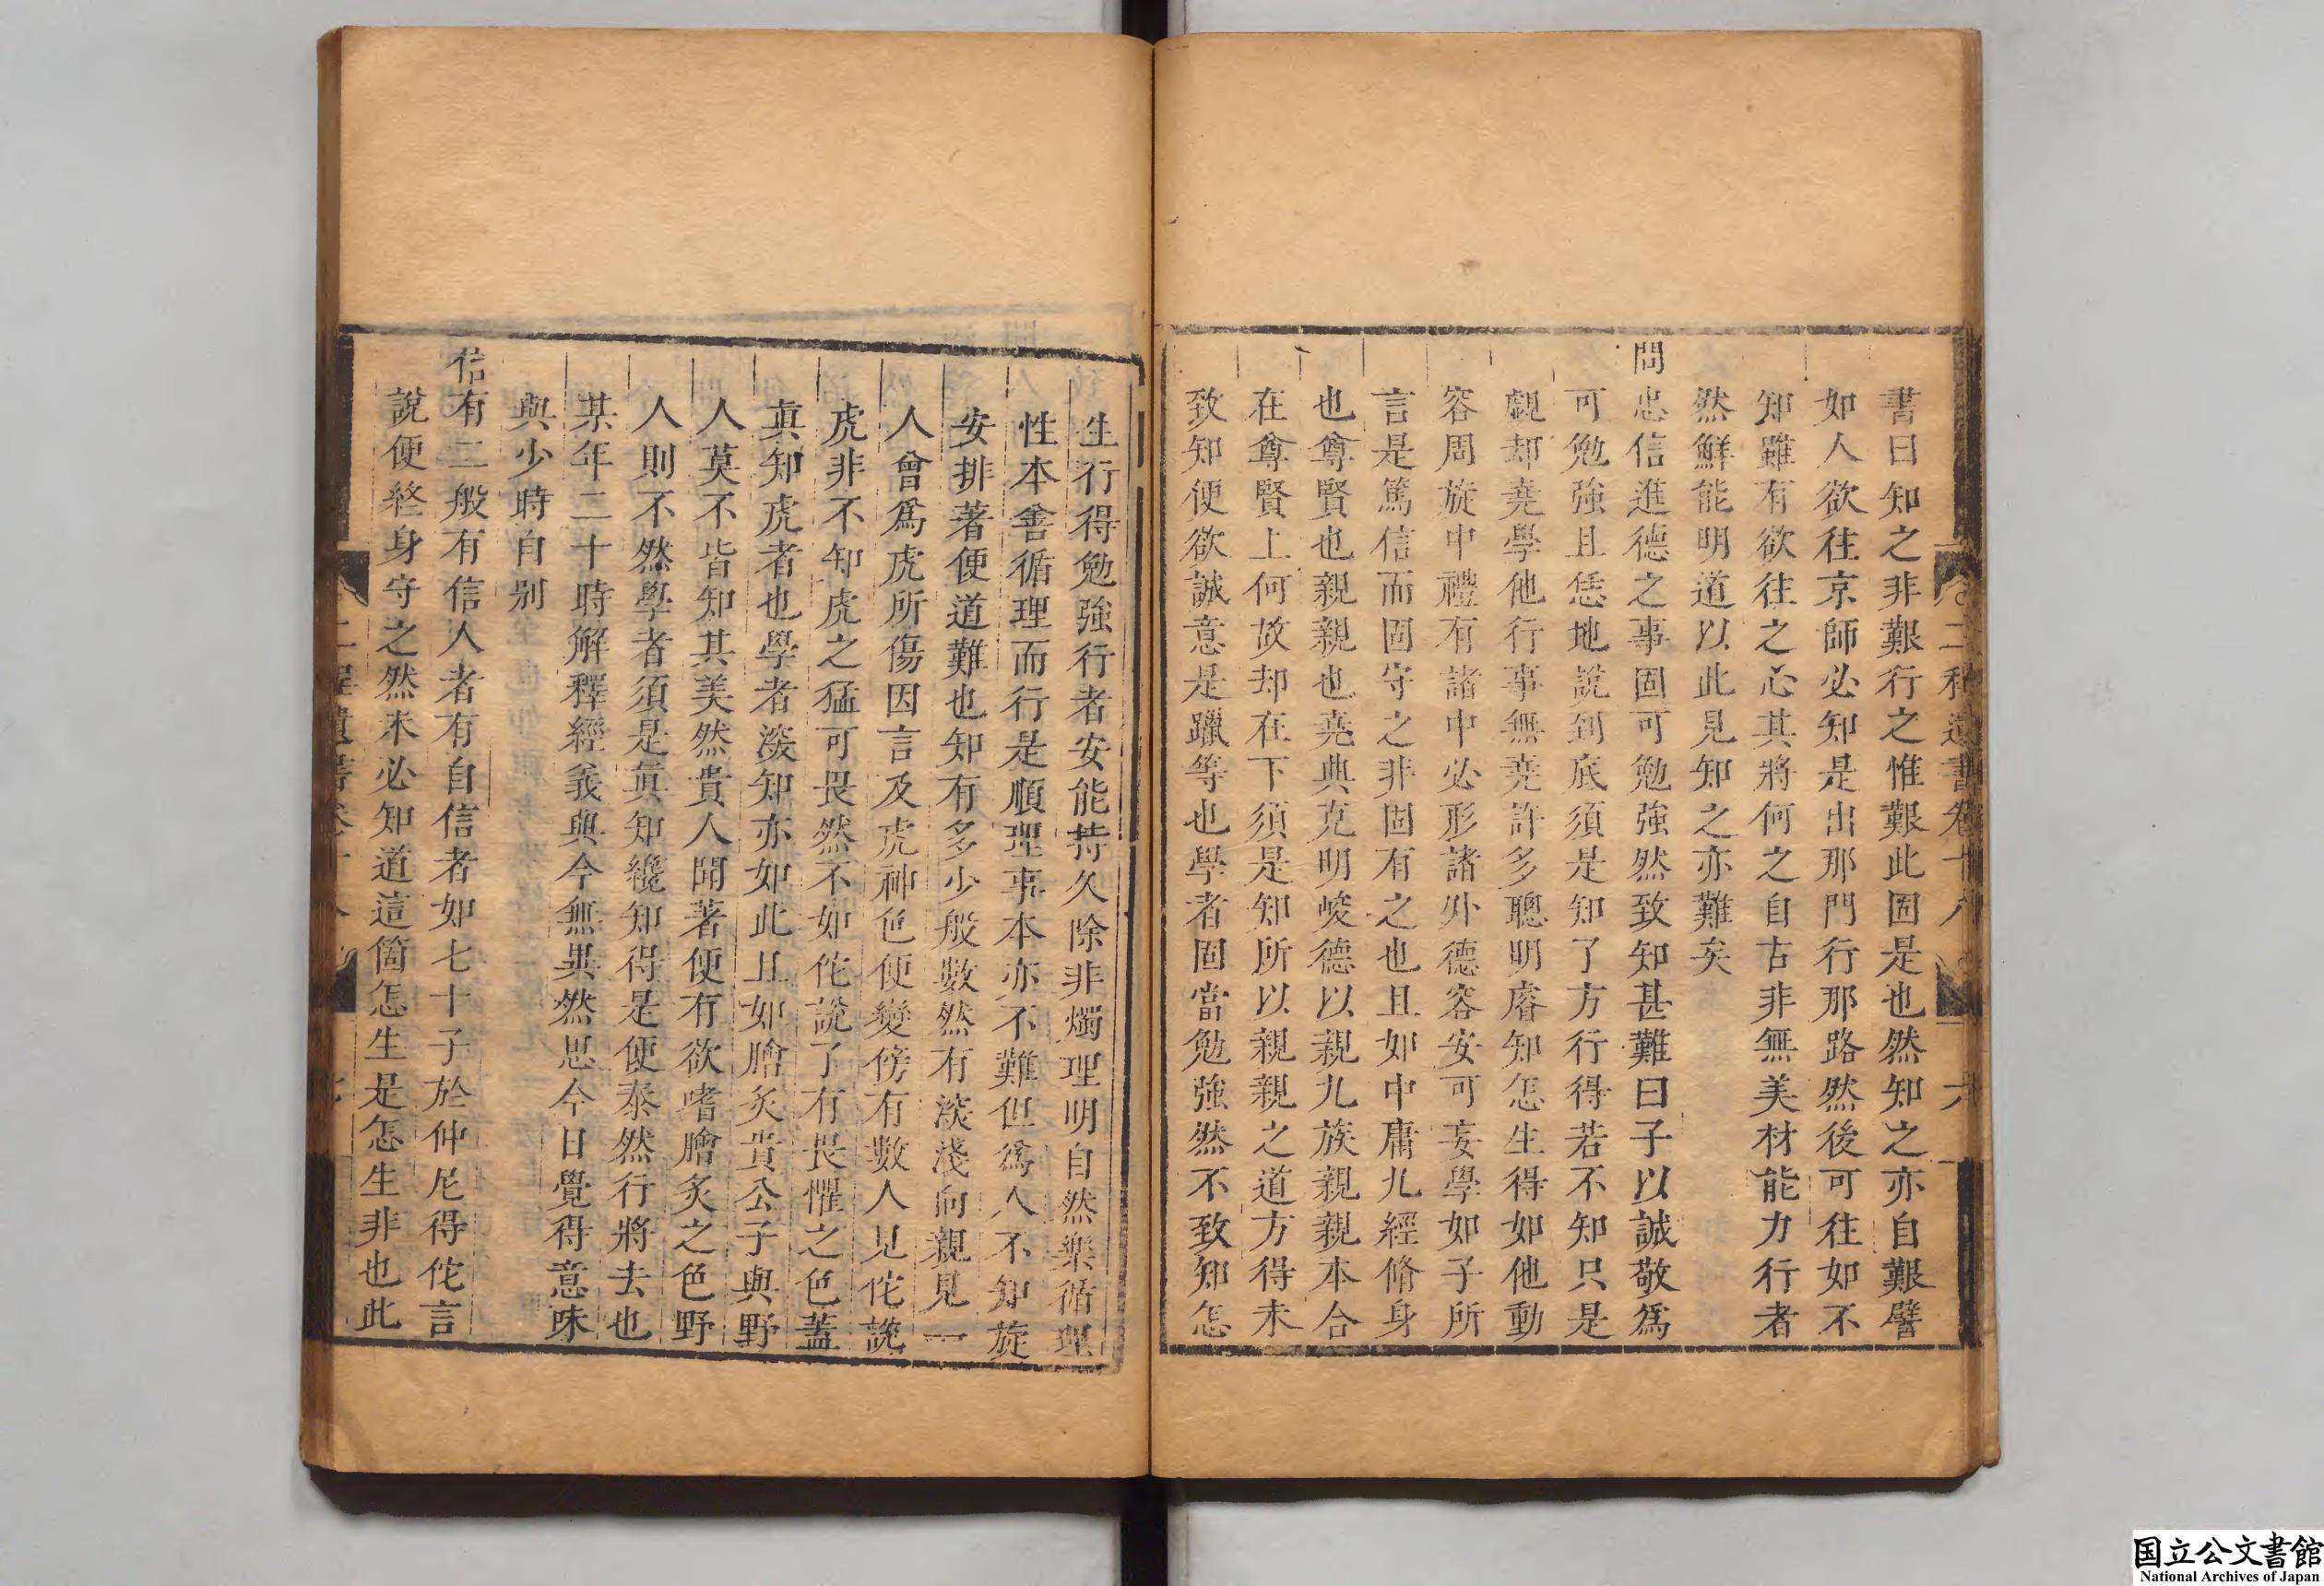 書曰知之非艱行之惟艱此固是也然知之亦自艱譬
如人欲往京師必知是出那門行那路然後可往如不
知雖有欲往之心其將何之自古非無美材能力行者
然鮮能明道以此見知之亦難矣
問忠信進德之事固可勉強然致知甚難曰子以誠敬爲
可勉強且恁地說到底須是知了方行得若不知只是
覷却堯學他行事無堯許多聰明睿知怎生得如他動
容周旋中禮有諸中必形諸外德容安可妄學如子所
言是篤信而固守之非固有之也且如中庸九經脩身
也尊賢也親親也堯典克明峻德以親九族親親本合
在尊賢上何故却在下須是知所以親親之道方得未
致知便欲誠意是躐等也學者固當勉強然不致知怎
生行得勉強行者安能持久除非燭理明自然樂循理
性本善循理而行是順理事本亦不難但爲人不知旋
安排著便道難也知有多少般數然有淺向親見一
人曾爲虎所傷因言及虎神色便變傍有數人見佗說
虎非不知虎之猛可畏然不如佗說了有畏懼之色蓋
眞知虎者也學者深知亦如此且如膾炙貴公子與野
人莫不皆知其美然貴人聞著便有欲嗜膾炙之色野
人則不然學者須是眞知纔知得是便泰然行將去也
某年二十時解釋經義與今無異然思今日覺得意味
與少時自別
信有二般有信人者有自信者如七十子於仲尼得佗言
說便終身守之然未必知道這箇怎生是怎生非也此
二程遺書卷十八 六
国立公文書館
National Archives of Japan